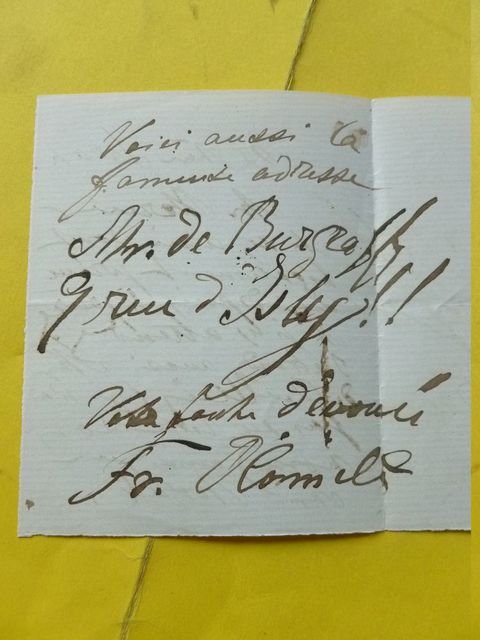 Voici aussi la
fameuse adresse
Mr. de Burgraff
9 rue d'Isly!!
Votre
dévoué
Fr.